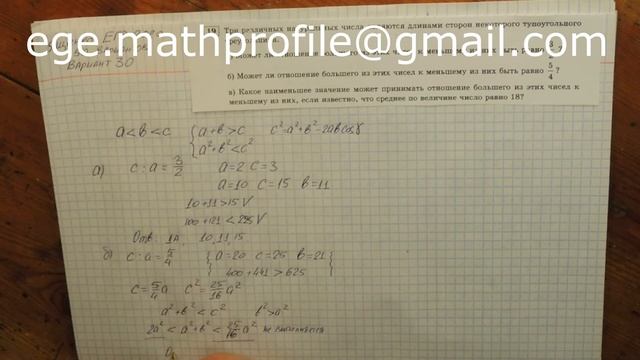 ege.mathprofile@gmail.com
19
Три различных натуральных числа являются длинами сторон некоторого тупоугольного
а) Может ли отношение большего из этих чисел к меньшему из них быть равно 3/2?
б) Может ли отношение большего из этих чисел к меньшему из них быть равно 5/4?
в) Какое наименьшее значение может принимать отношение большего из этих чисел к
меньшему из них, если известно, что среднее по величине число равно 18?
Вариант 30
a<b<c { a+b>c c²=a²+b²-2abcosγ
a²+b²<c²
а) c:a=3/2 a=2 c=3
a=10 c=15 b=11
10+11>15 V
100+121<225 V
Отв: ДА, 10,11,15
б) c:a=5/4 { a=20 c=25 b=21 }
400+441>625
c=5/4a c²=25/16a²
a²+b²<c² b²>a²
2a²<a²+b²<25/16a² не выполняется